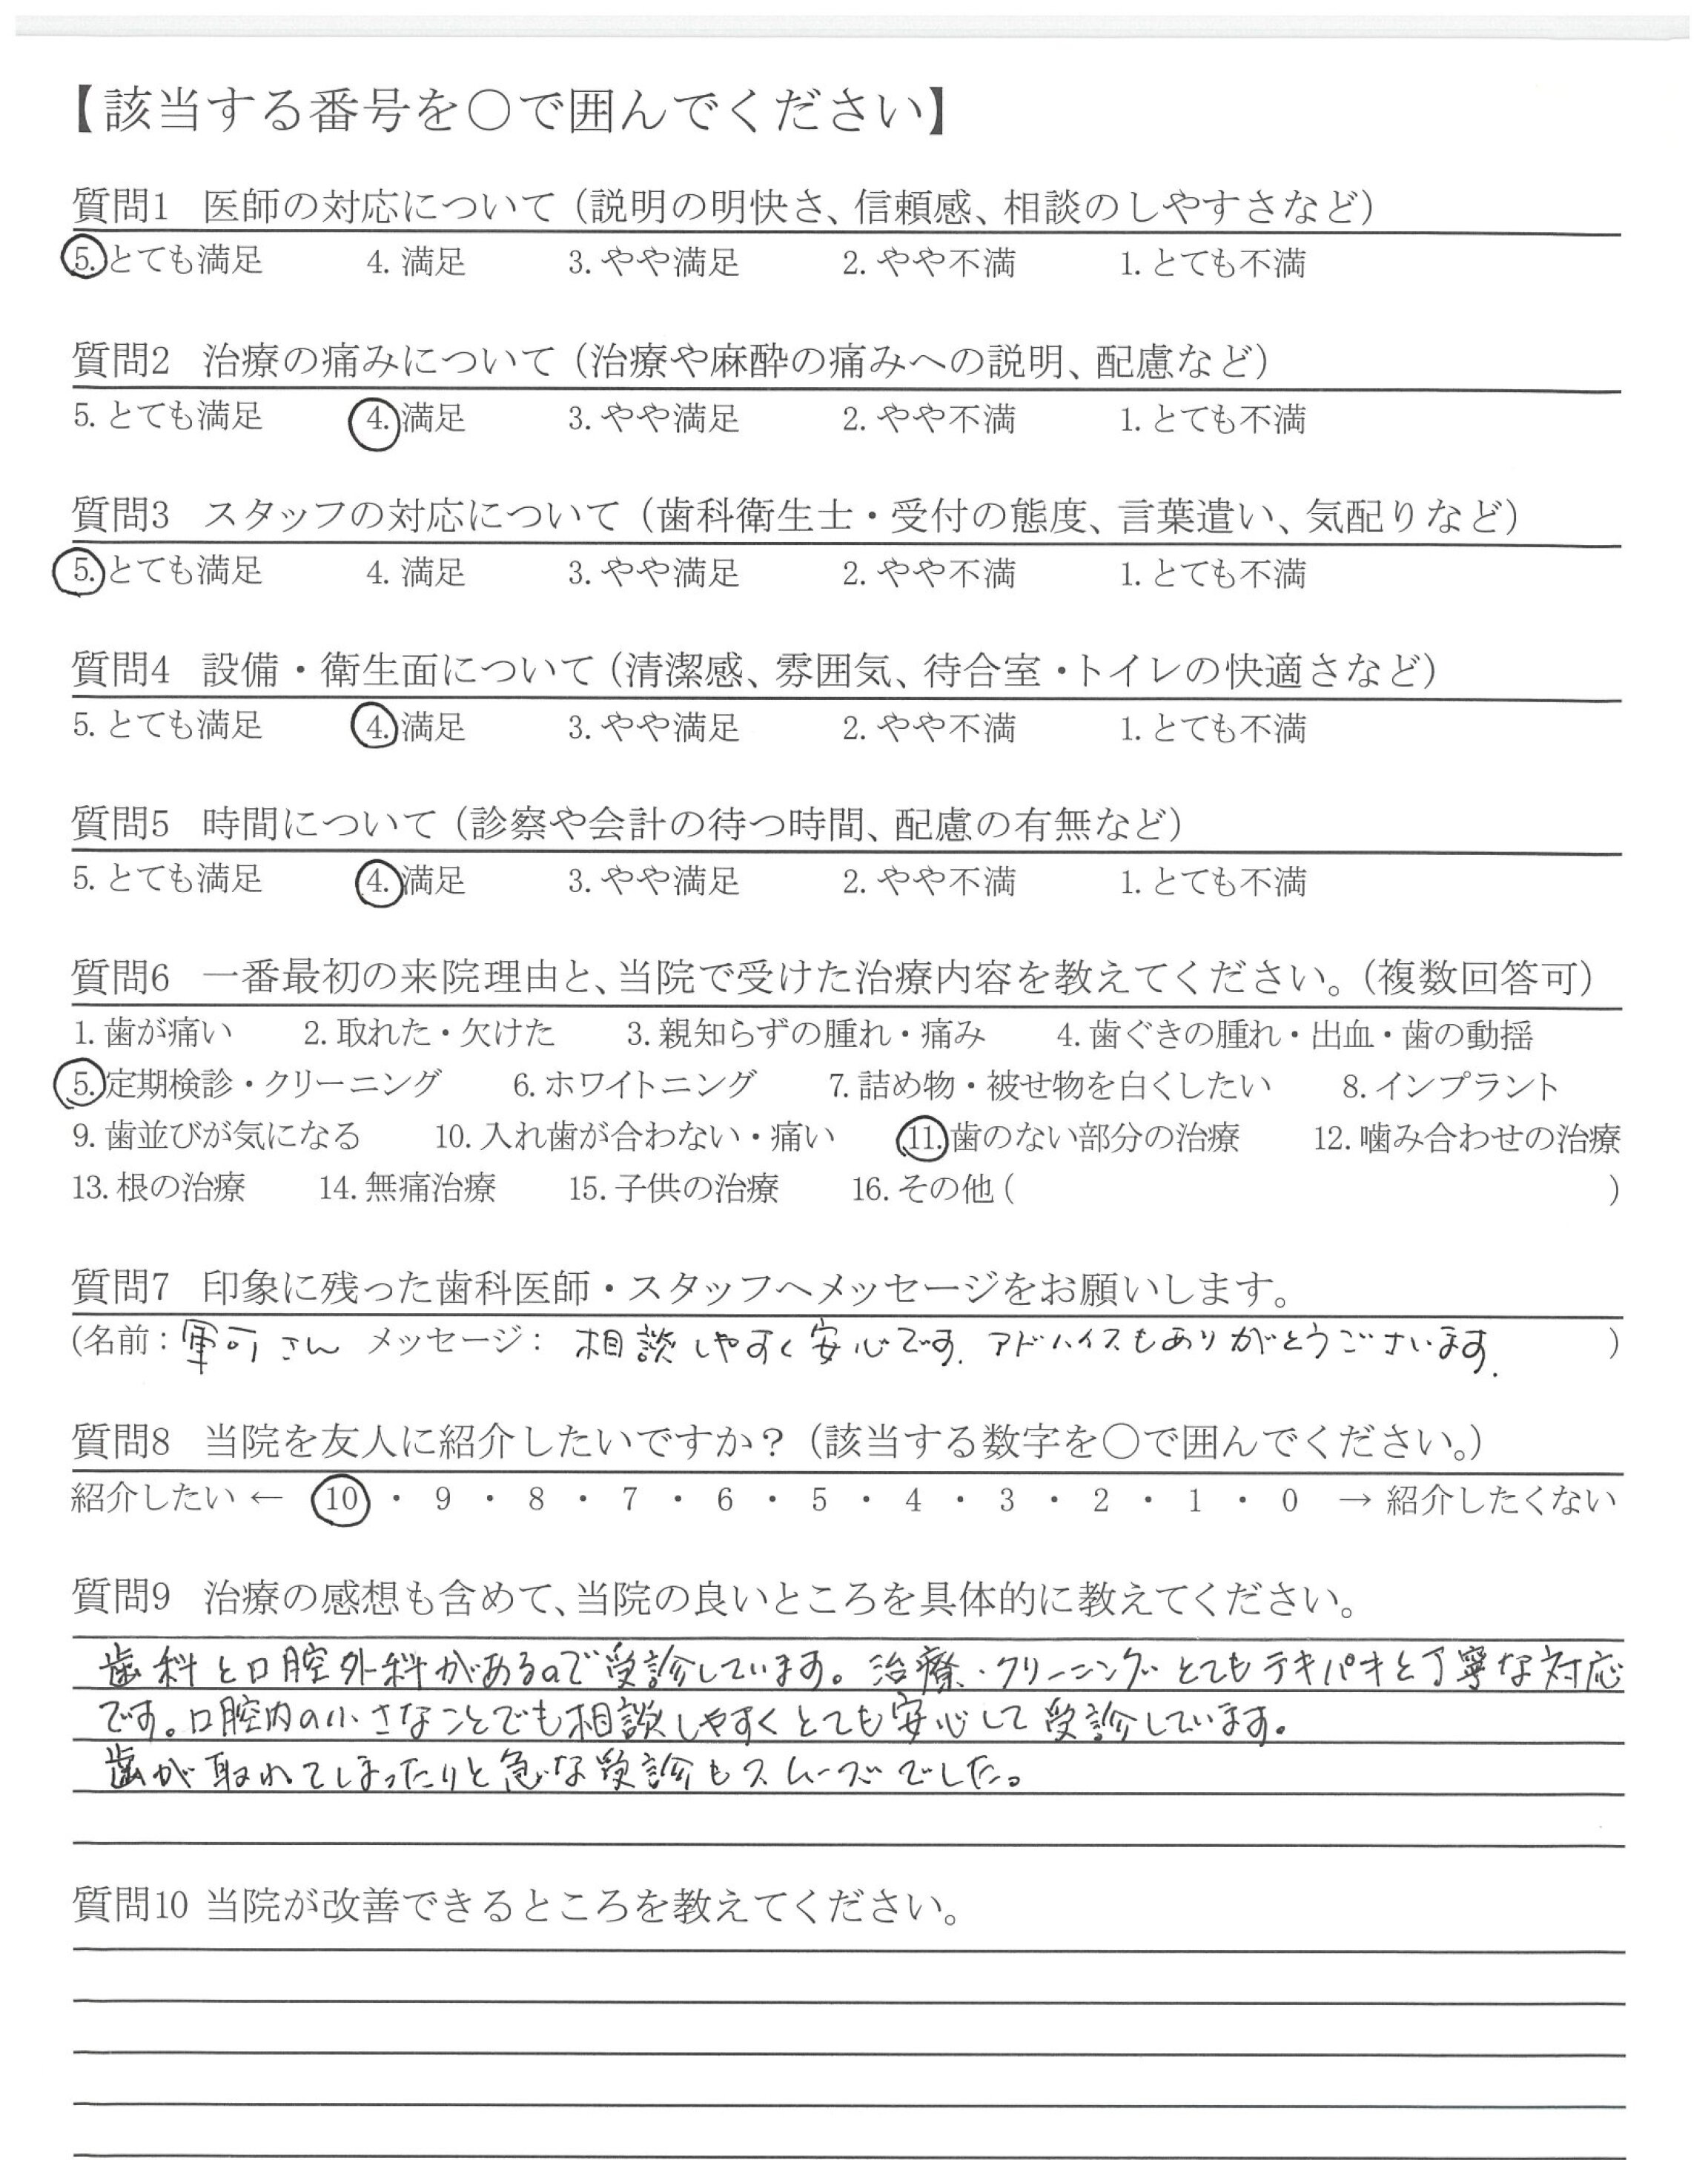 【該当する番号を○で囲んでください】
質問1 医師の対応について（説明の明快さ、信頼感、相談のしやすさなど）
5. とても満足 4. 満足 3. やや満足 2. やや不満 1. とても不満
質問2 治療の痛みについて（治療や麻酔の痛みへの説明、配慮など）
5. とても満足 4. 満足 3. やや満足 2. やや不満 1. とても不満
質問3 スタッフの対応について（歯科衛生士・受付の態度、言葉遣い、気配りなど）
5. とても満足 4. 満足 3. やや満足 2. やや不満 1. とても不満
質問4 設備・衛生面について（清潔感、雰囲気、待合室・トイレの快適さなど）
5. とても満足 4. 満足 3. やや満足 2. やや不満 1. とても不満
質問5 時間について（診察や会計の待つ時間、配慮の有無など）
5. とても満足 4. 満足 3. やや満足 2. やや不満 1. とても不満
質問6 一番最初の来院理由と、当院で受けた治療内容を教えてください。（複数回答可）
1. 歯が痛い 2. 取れた・欠けた 3. 親知らずの腫れ・痛み 4. 歯ぐきの腫れ・出血・歯の動揺
5. 定期検診・クリーニング 6. ホワイトニング 7. 詰め物・被せ物を白くしたい 8. インプラント
9. 歯並びが気になる 10. 入れ歯が合わない・痛い 11. 歯のない部分の治療 12. 噛み合わせの治療
13. 根の治療 14. 無痛治療 15. 子供の治療 16. その他（ ）
質問7 印象に残った歯科医師・スタッフへメッセージをお願いします。
（名前：軍司さん メッセージ： 相談しやすく安心です. アドバイスもありがとうございます. ）
質問8 当院を友人に紹介したいですか？（該当する数字を○で囲んでください。）
紹介したい ← 10 ・ 9 ・ 8 ・ 7 ・ 6 ・ 5 ・ 4 ・ 3 ・ 2 ・ 1 ・ 0 → 紹介したくない
質問9 治療の感想も含めて、当院の良いところを具体的に教えてください。
歯科と口腔外科があるので受診しています。治療、クリーニングとてもテキパキと丁寧な対応
です。口腔内の小さなことでも相談しやすくとても安心して受診しています。
歯が取れてしまったりと急な受診もスムーズでした。
質問10 当院が改善できるところを教えてください。